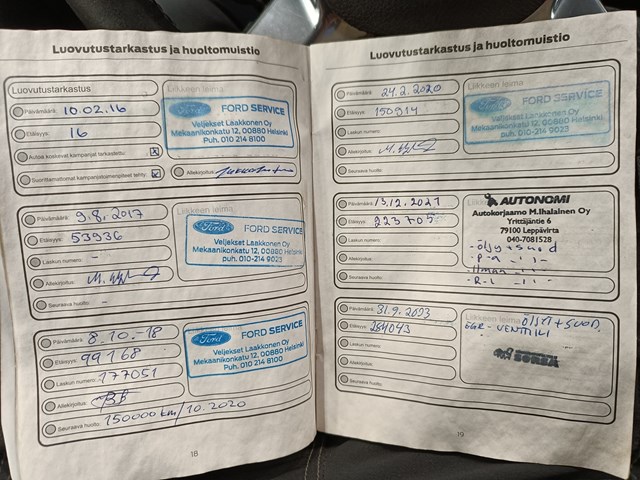 Luovutustarkastus ja huoltomuistio
Luovutustarkastus
Liikkeen leima
Päivämäärä: 10.02.16
Etäisyys: 16
Autoa koskevat kampanjat tarkastettu: x
Suorittamattomat kampanjatoimenpiteet tehty: x
Ford FORD SERVICE
Veljekset Laakkonen Oy
Mekaanikonkatu 12, 00880 Helsinki
Puh. 010 214 8100
Allekirjoitus:
Päivämäärä: 9.8.2017
Etäisyys: 53936
Laskun numero: -
Allekirjoitus:
Seuraava huolto: -
Liikkeen leima
Ford FORD SERVICE
Veljekset Laakkonen Oy
Mekaanikonkatu 12, 00880 Helsinki
puh. 010-214 9023
Päivämäärä: 8.10.-18
Etäisyys: 99168
Laskun numero: 177051
Allekirjoitus:
Seuraava huolto: 150000 km/10.2020
Ford FORD SERVICE
Veljekset Laakkonen Oy
Mekaanikonkatu 12, 00880 Helsinki
Puh. 010 214 8100
18
Luovutustarkastus ja huoltomuistio
Päivämäärä: 24.2.2020
Etäisyys: 150914
Laskun numero:
Allekirjoitus:
Seuraava huolto:
Liikkeen leima
Ford FORD SERVICE
Veljekset Laakkonen Oy
Mekaanikonkatu 12, 00880 Helsinki
puh. 010-214 9023
Päivämäärä: 13.12.2021
Etäisyys: 223705
Laskun numero:
Allekirjoitus:
Seuraava huolto:
AUTONOMI
Autokorjaamo M.Ihalainen Oy
Yrittäjäntie 6
79100 Leppävirta
040-7081528
- öljy + suod
Päivämäärä: 31.9.2023
Etäisyys: 264043
Laskun numero:
Allekirjoitus:
Seuraava huolto:
Liikkeen leima
ÖLJYT + SUOD.
EGR-VENTTIILI
19